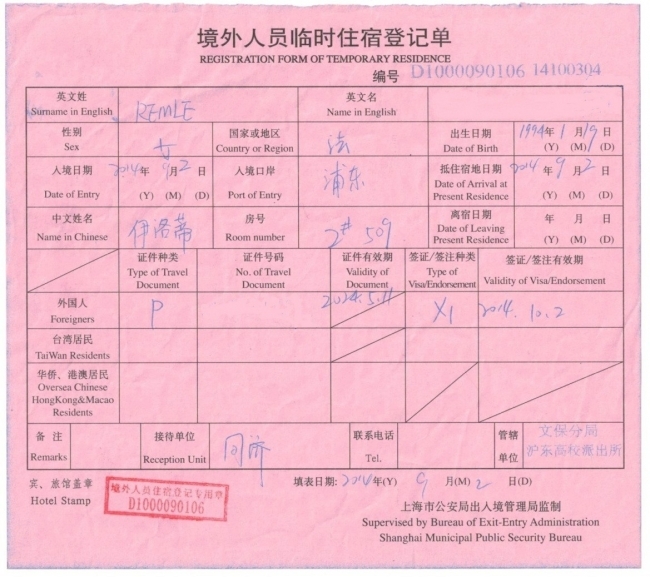 境外人员临时住宿登记单
REGISTRATION FORM OF TEMPORARY RESIDENCE
编号 D1000090106 14100304
英文姓 Surname in English REMLE 英文名 Name in English
性别 Sex 女 国家或地区 Country or Region 法 出生日期 Date of Birth 1994年1月19日 (Y) (M) (D)
入境日期 Date of Entry 2014年9月2日 (Y) (M) (D) 入境口岸 Port of Entry 浦东 抵住宿地日期 Date of Arrival at Present Residence 2014年9月2日 (Y) (M) (D)
中文姓名 Name in Chinese 伊洛蒂 房号 Room number 2# 509 离宿日期 Date of Leaving Present Residence 年 月 日 (Y) (M) (D)
证件种类 Type of Travel Document 证件号码 No. of Travel Document 证件有效期 Validity of Document 签证/签注种类 Type of Visa/Endorsement 签证/签注有效期 Validity of Visa/Endorsement
外国人 Foreigners P 2024.5.11 X1 2014.10.2
台湾居民 TaiWan Residents
华侨、港澳居民 Oversea Chinese HongKong&Macao Residents
备注 Remarks 接待单位 Reception Unit 同济 联系电话 Tel. 管辖单位 文保分局 沪东高校派出所
宾、旅馆盖章 Hotel Stamp 境外人员住宿登记专用章 D1000090106 填表日期: 2014年(Y) 9月(M) 2日(D)
上海市公安局出入境管理局监制
Supervised by Bureau of Exit-Entry Administration
Shanghai Municipal Public Security Bureau